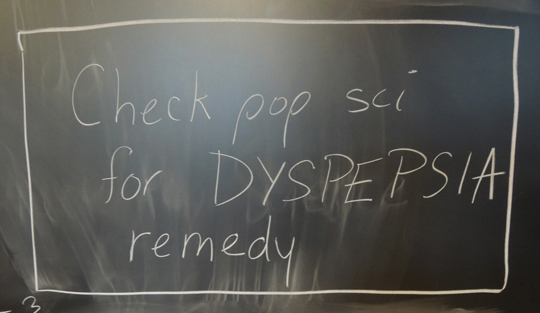 Check pop sci
for DYSPEPSIA
remedy
- 3